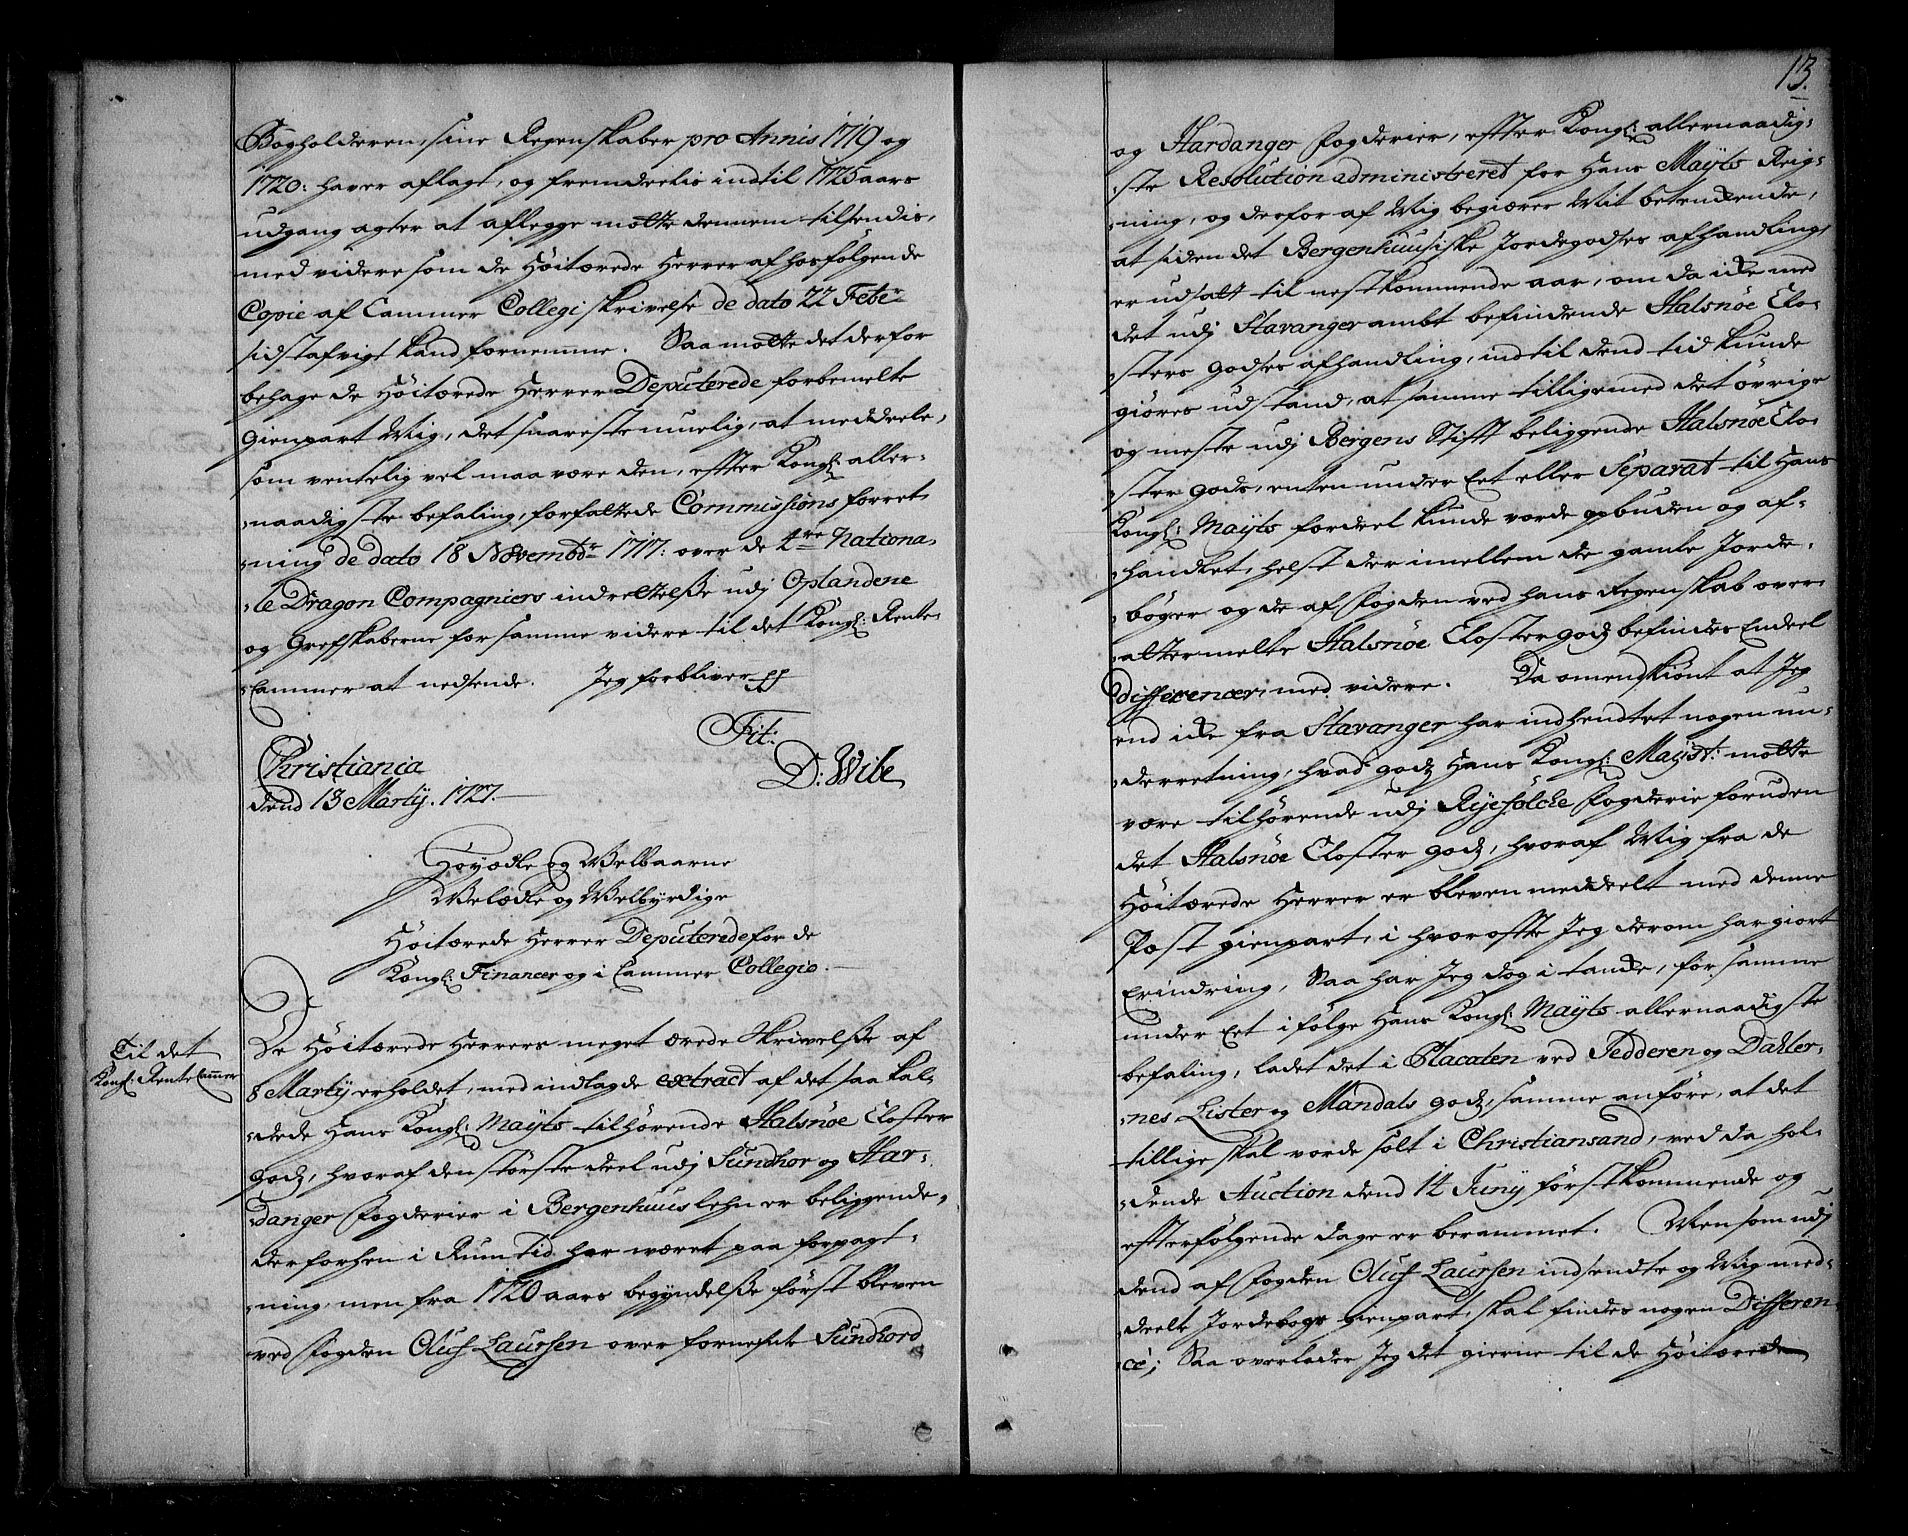 Bogholderen, sine Regenskaber pro Annis 1719 og
1720: haver aflagt, og fremdeelis indtil 1725 aars
udgang agter at aflegge motte dennem tilsendis,
med videre som de Høitærede Herrer af hosfølgende
Copie af Cammer Collegi skrivelse de dato 22 Febr:
sidstafvigt kand fornemme. Saa motte det derfor
behage de Høitærede Herrer Deputerede forbemelte
Gienpart Mig, det snareste muelig, at meddeele,
som ventelig vel maa være den, effter Kongl: aller-
naadigste befaling, forfattede Commissions forret-
ning de dato 18 Novembr: 1717: over de 4re Nationa-
le Dragon Compagniers indrettelße udj Oplandene
og Grefskaberne for samme videre til det Kongl: Rente
Cammer at nedsende. Jeg forbliver
Tit:
Christiania D: Wibe
dend 13 Martij. 1727.
Høyædle og Welbaarne
Welædle og Welbyrdige
Høitærede Herrer Deputerede for de
Kongl: Financer og i Cammer Collegio.
Til det
Kongl: Rente Cammer
De Høitærede Herrers meget ærede Skrivelße af
8 Martij erholdet, med indlagde extract af det saa kal-
dede Hans Kongl: Mayts tilhørende Halsnøe Closter
godz, hvoraf den største deel udj Sundhor og Har-
danger fogderier i Bergenhuus lehn er beliggende,
der forhen i Rum tid har wæret paa forpagt-
ning, men fra 1720 aars begyndelße først bleven
ved fogden Oluf Laursen over fornefnte Sundhord
13.
og Hardanger fogderier, effter Kongl: allernaadig-
ste Resolution administreret for Hans Mayts Reig-
ning, og derfor af Mig begiærer Mit betenkende,
at siden det Bergenhuusiske Jordegodses afhandling
er udsatt til nestkommende aar, om da icke med
det udj Stavanger ambt befindende Halsnøe Clo-
sters godses afhandling, indtil dend tid kunde
giøres udstand, at samme tilligemed det øvrige
og meste udj Bergens Stifft beliggende Halsnøe Clo-
ster gods, enten under Eet eller Separat til Hans
Kongl: Mayts fordeel kunde vorde opbuden og af-
handlet, helst der imellem de gamle Jorde-
bøger og de af fogden ved hans Regenskab over
attermelte Halsnøe Closter godz befindes Endeel
differencer, med videre. Da omenskiønt at Jeg
end icke fra Stavanger har indhendtet nogen un-
derretning, hvad godz Hans Kongl: Mayst: motte
være tilhørende udj Ryefølcke fogderie foruden
det Halsnøe Closter godz, hvoraf Mig fra de
Høitærede Herrer er bleven meddeelt med denne
Post gienpart, i hvoroffte Jeg derom har giort
Erindring, Saa har Jeg dog i tancke, for samme
under Eet ifølge Hans Kongl: Mayts allernaadigste
befaling, ladet det i Placaten ved Fedderen og Dahler-
nes Lister og Mandals godz, samme anføre, at det
tillige skal vorde solt i Christiansand, ved da hol-
dende Auction dend 14 Juny førstkommende og
effterfølgende dage er berammet. Men som udj
dend af fogden Oluf Laursen indsendte og Mig med-
deelt Jordebogs Gienpart, skal findes nogen Differen-
ce; Saa overlader Jeg det gierne til de Høitærede